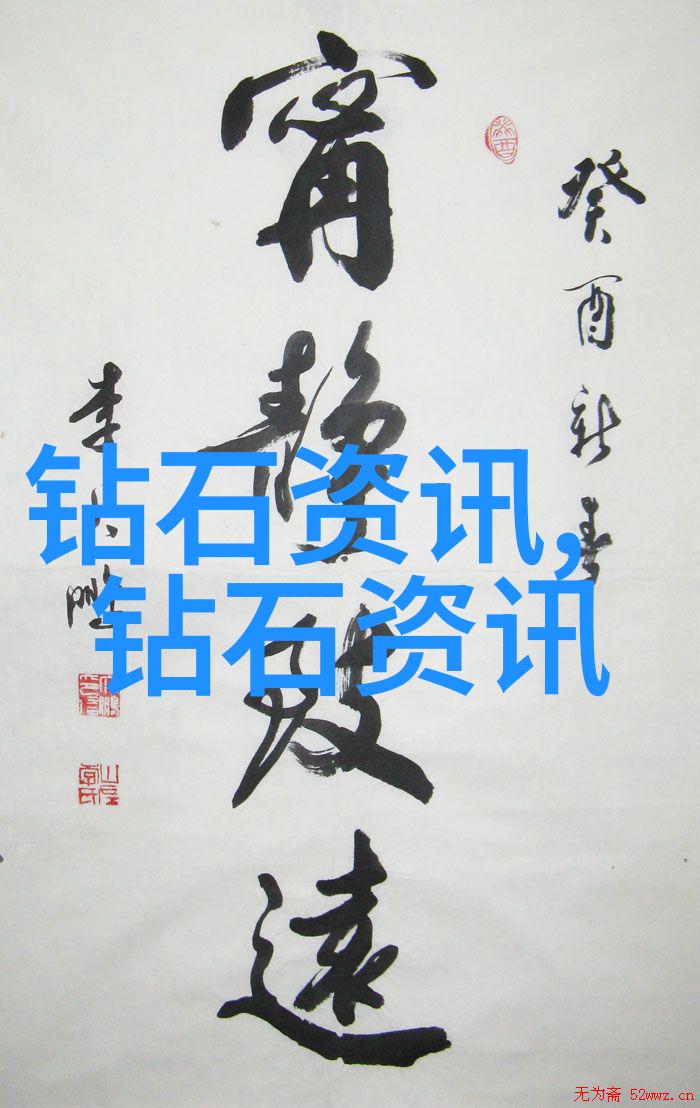 甯靜致遠
癸酉新春
李大鹏
钻石资讯,
钻石资讯
无为斋 52wwz.cn